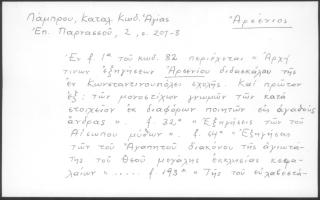 Λάμπρου, Καταλ. Κωδ. Ἁγίας Ἀρσένιος
Ἐπ. Παρνασσοῦ, 2, σ. 207-8
Ἐν f. 1α τοῦ κωδ. 82 περιέχεται « Ἀρχή
τινων ἐξηγήσεων Ἀρσενίου διδασκάλου τῆς
ἐν Κωνσταντινουπόλει σχολῆς. Καί πρῶτον
ἐξ. τῶν μονοστίχων γνωμῶν τῶν κατά
στοιχεῖον ἐκ διαφόρων ποιητῶν εἰς ἀγαθούς
ἄνδρας ». f. 32α « Ἐξηγήσεις τῶν τοῦ
Αἰσώπου μύθων ». f. 64α « Ἐξηγήσεις
τῶν τοῦ Ἀγαπητοῦ διακόνου τῆς ἁγιωτά-
της τοῦ Θεοῦ μεγάλης ἐκκλησίας κεφα-
λαίων »..... f. 193α « Τῆς τοῦ εὐλαβεστά-